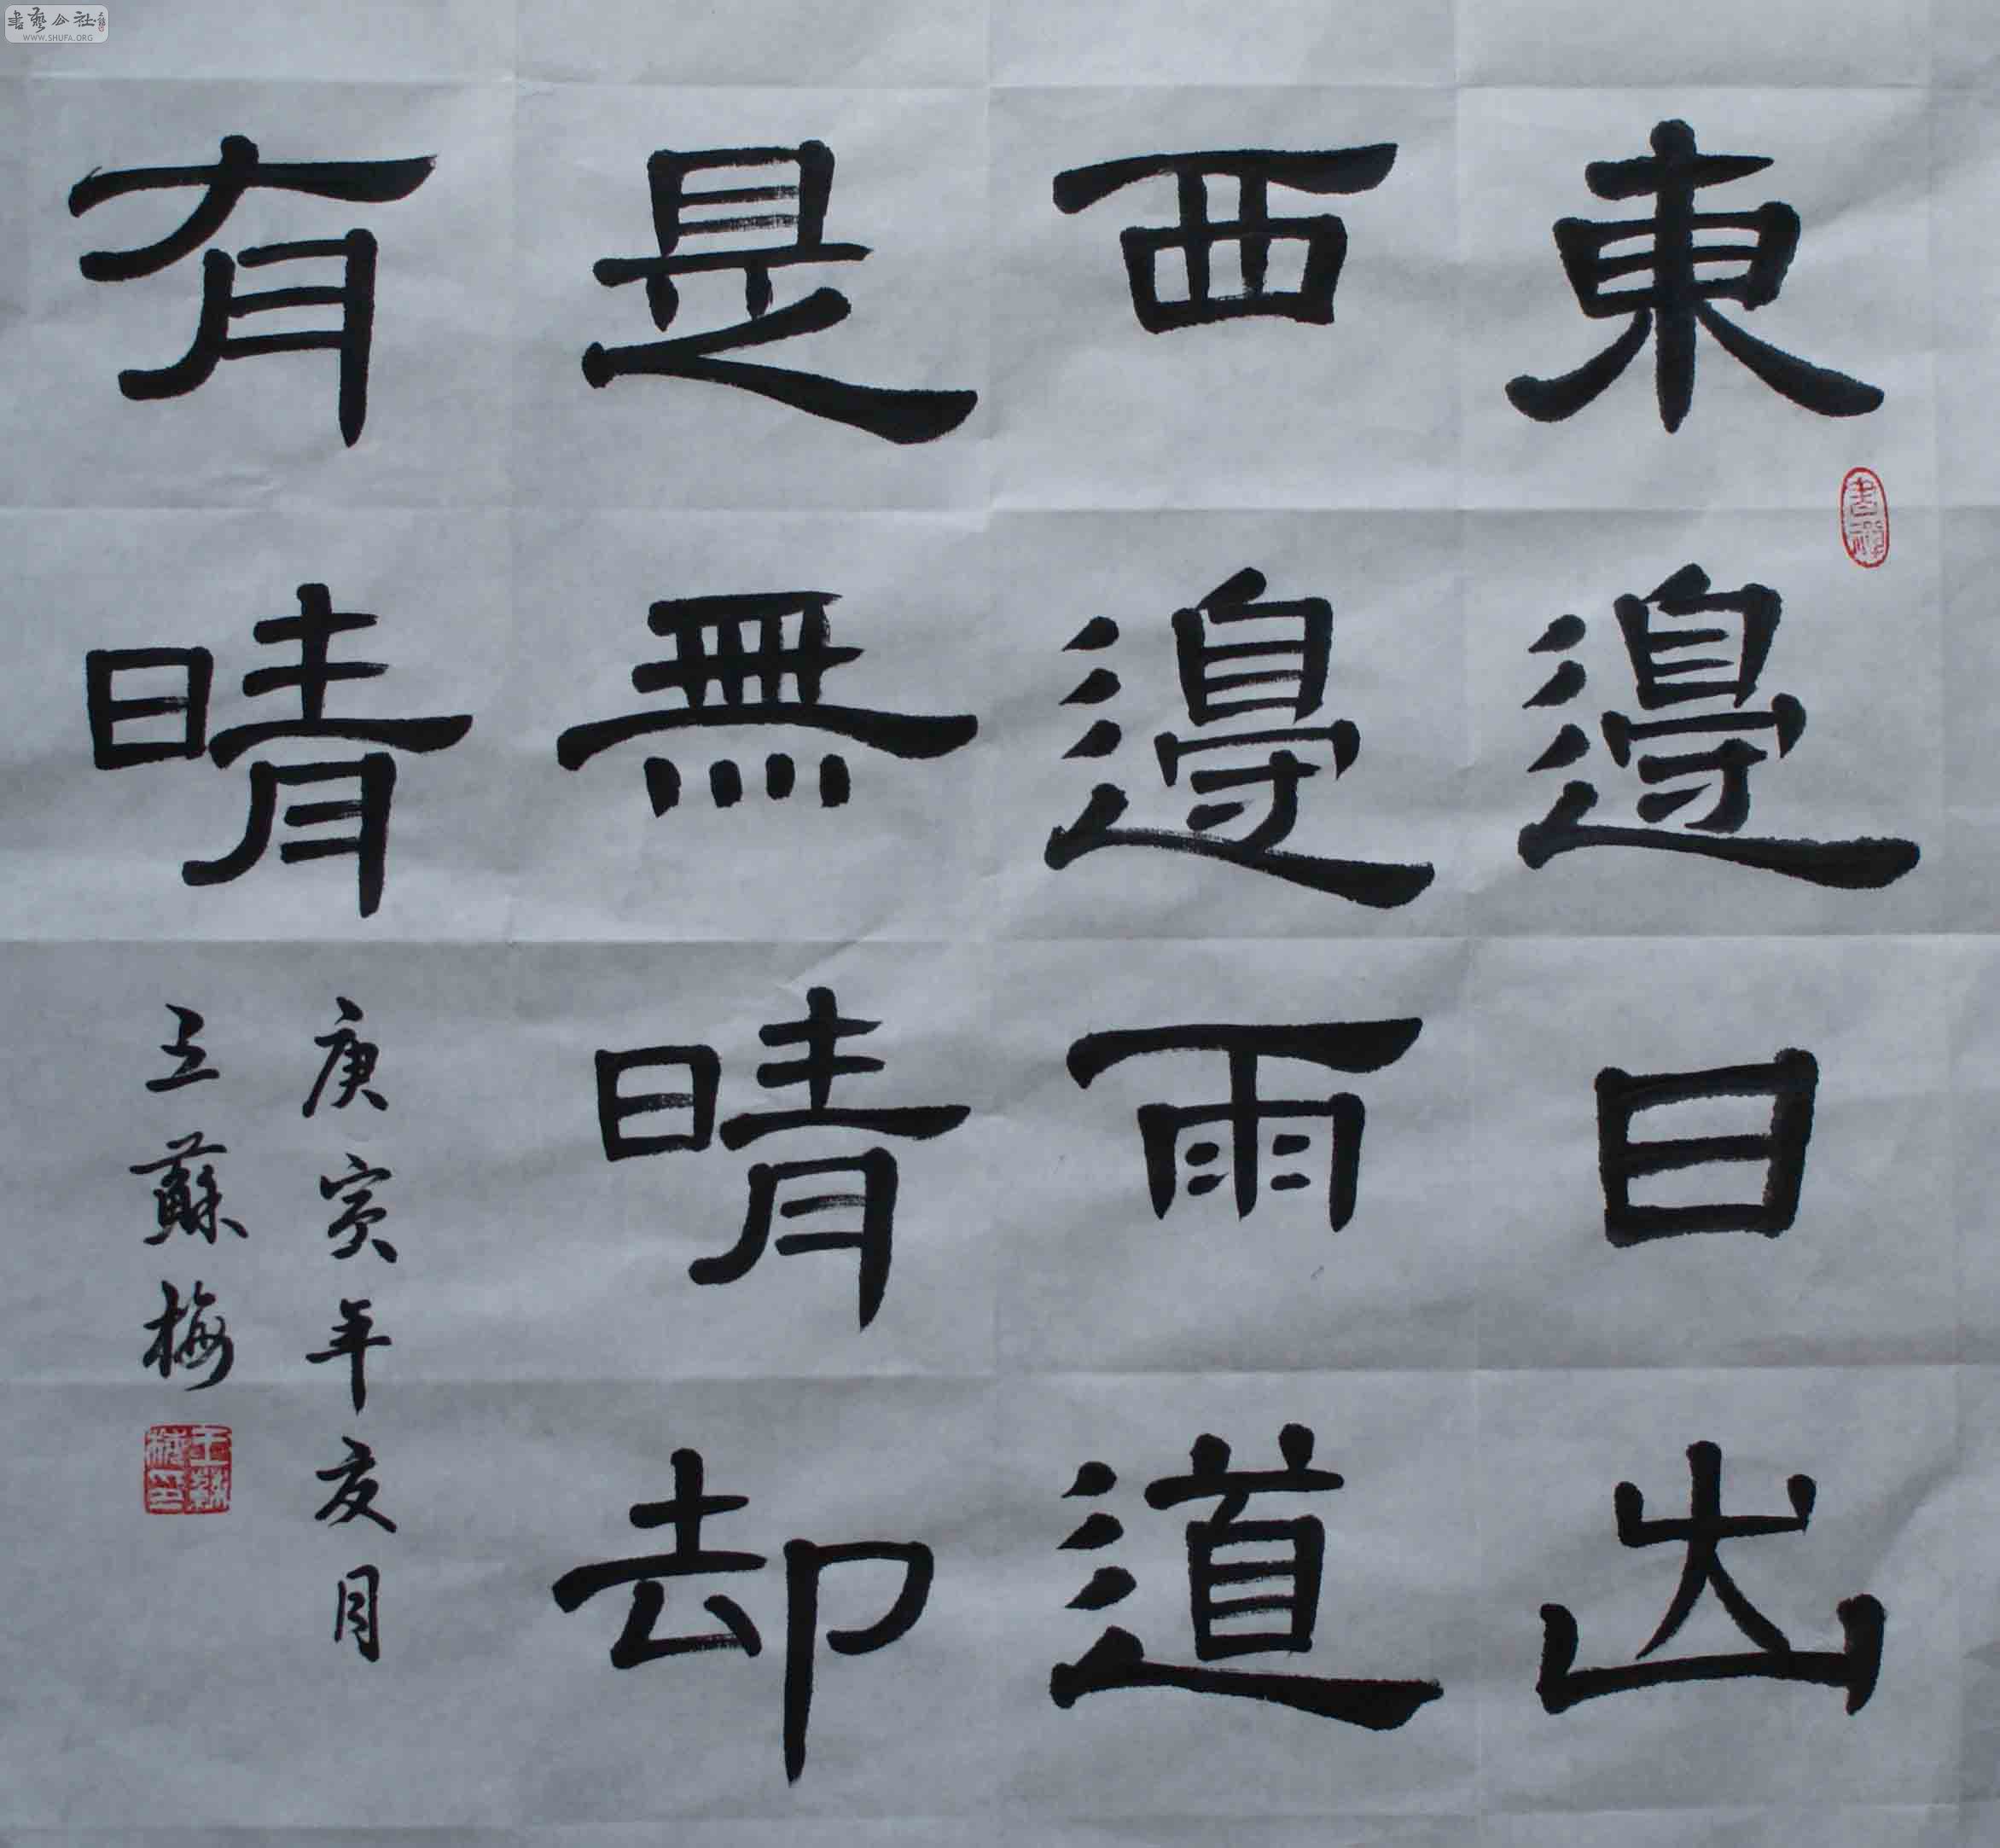 東邊日出
西邊雨道
是無晴却
有晴
庚寅年亥月
王蘇梅
王蘇梅印
書藝公社
WWW.SHUFA.ORG